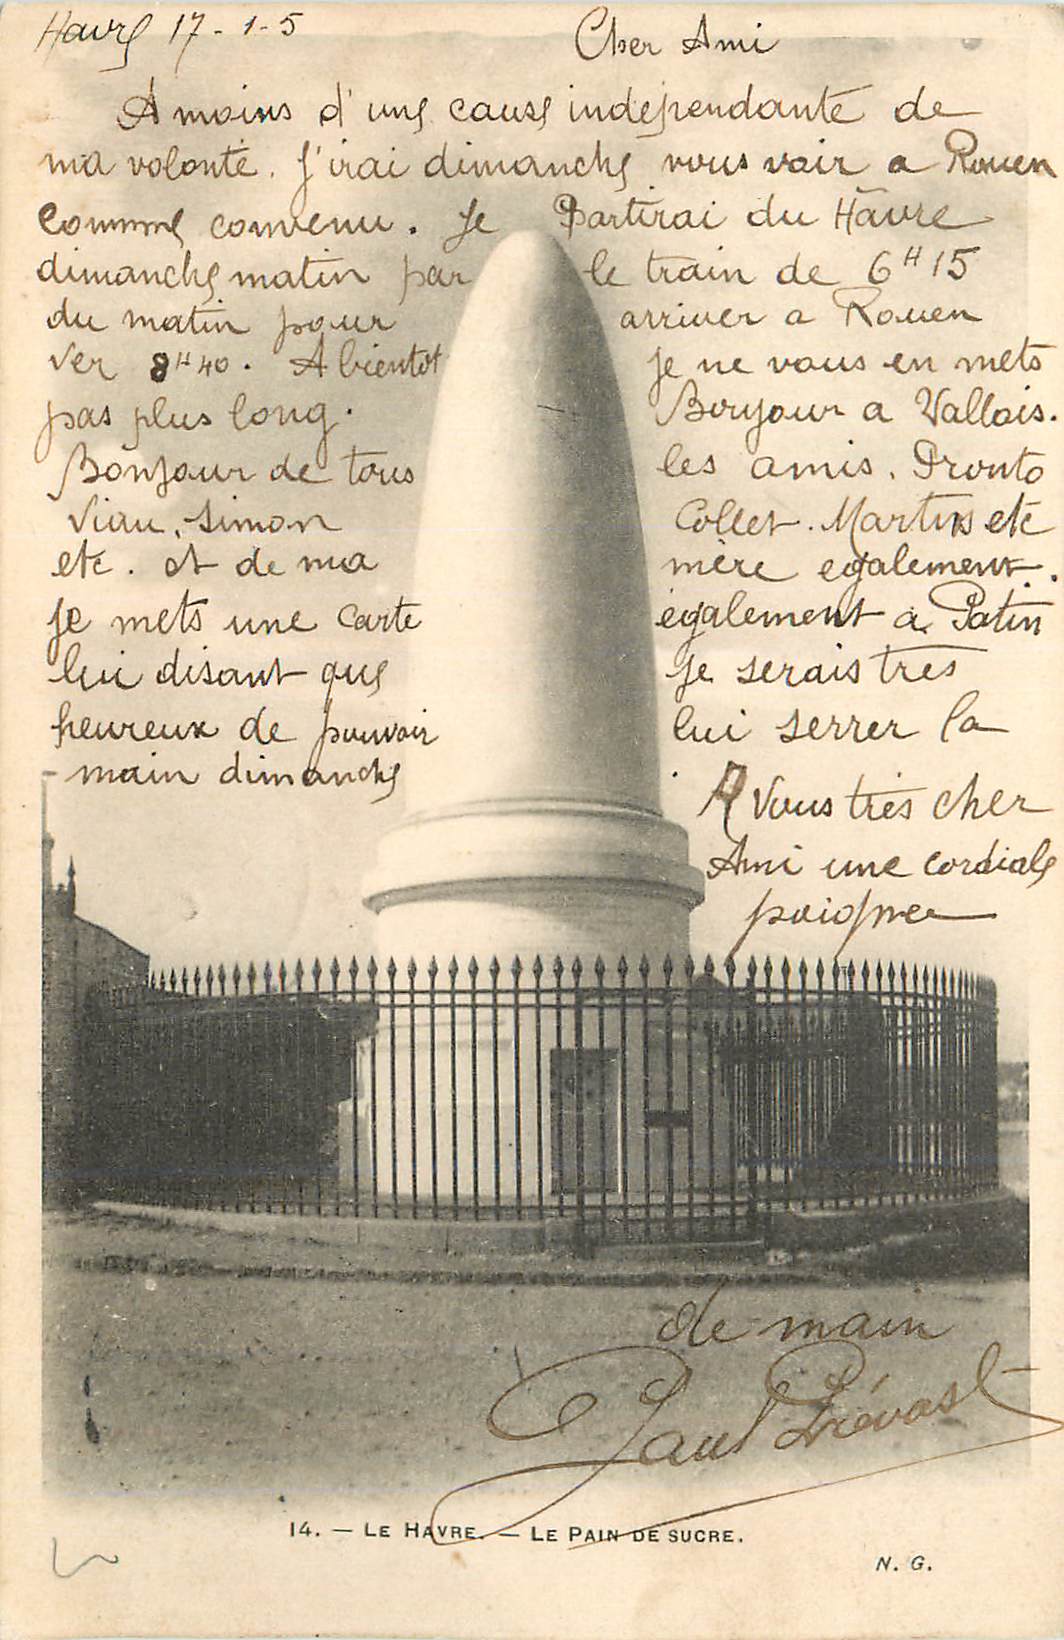 Havre 17-1-5
Cher Ami
A moins d'une cause independante de
ma volonté. J'irai dimanche vous voir a Rouen
comme convenu. Je Partirai du Hâvre
dimanche matin par le train de 6H15
du matin pour arriver a Rouen
ver 8H40. A bientôt je ne vous en mets
pas plus long. Bonjour a Vallois.
Bonjour de tous les amis. Pronto
Viau, Simon Collet. Martin etc
etc. et de ma mère egalement.
Je mets une carte également a Patin
lui disant que je serais très
heureux de pouvoir lui serrer la
main dimanche
A Vous très cher
Ami une cordiale
poignee
de main
Paul Prévost
14. — LE HAVRE. — LE PAIN DE SUCRE.
N. G.